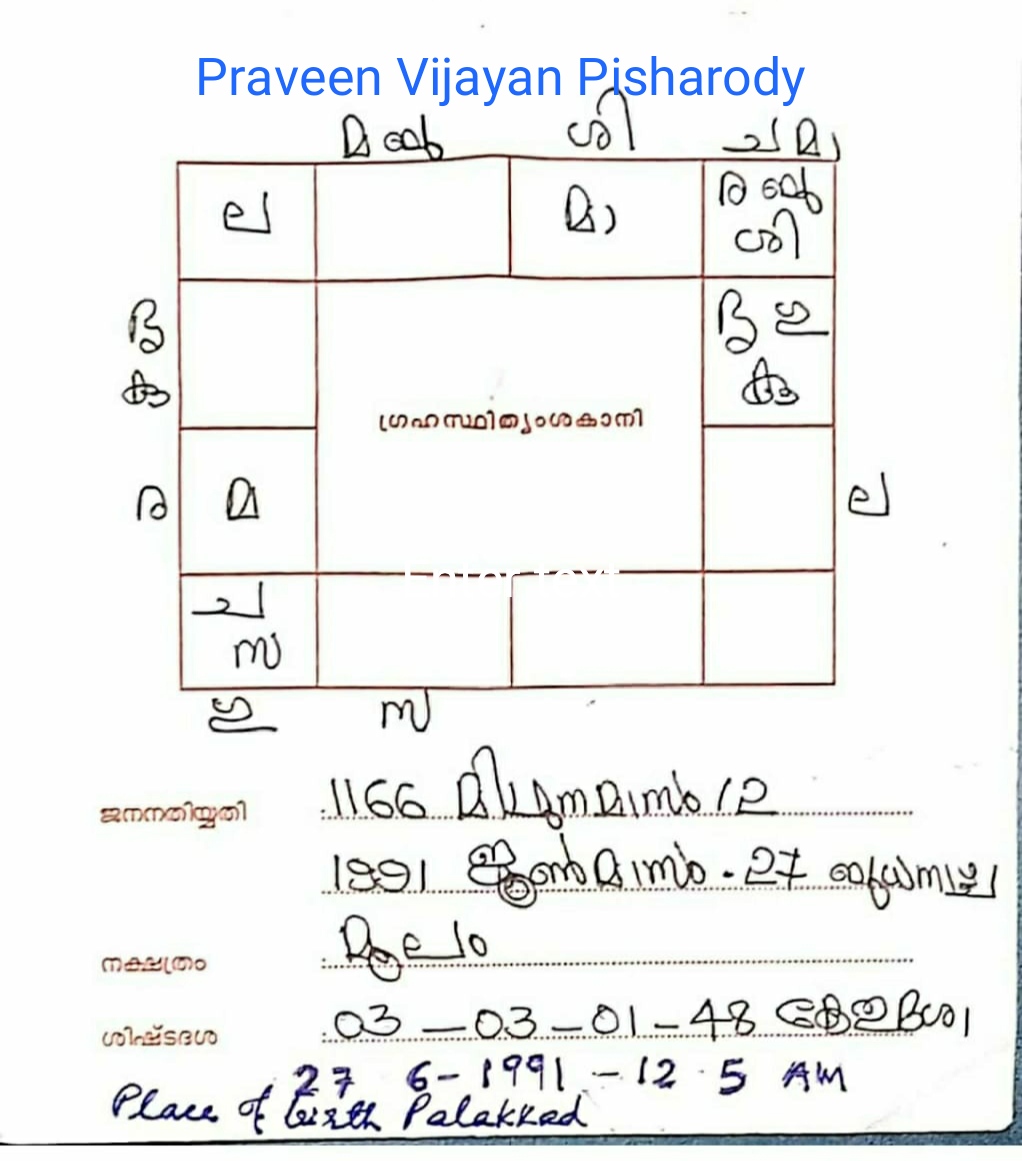 Praveen Vijayan Pisharody
മ ബു ശി ച മാ
ല മാ ര ബു
ശി
കു കു ഗു
കു കു
ഗ്രഹസ്ഥിത്യംശകാനി
ര മ ല
ച
സ
ഗു സ
ജനനതിയ്യതി :1166 മിഥുനമാസം 12
1991 ജൂൺമാസം - 27 ബുധനാഴ്ച
നക്ഷത്രം : മൂലം
ശിഷ്ടദശ : 03 – 03 – 01 – 48 കേതുദശ
27 6 - 1991 - 12 5 AM
Place of birth Palakkad